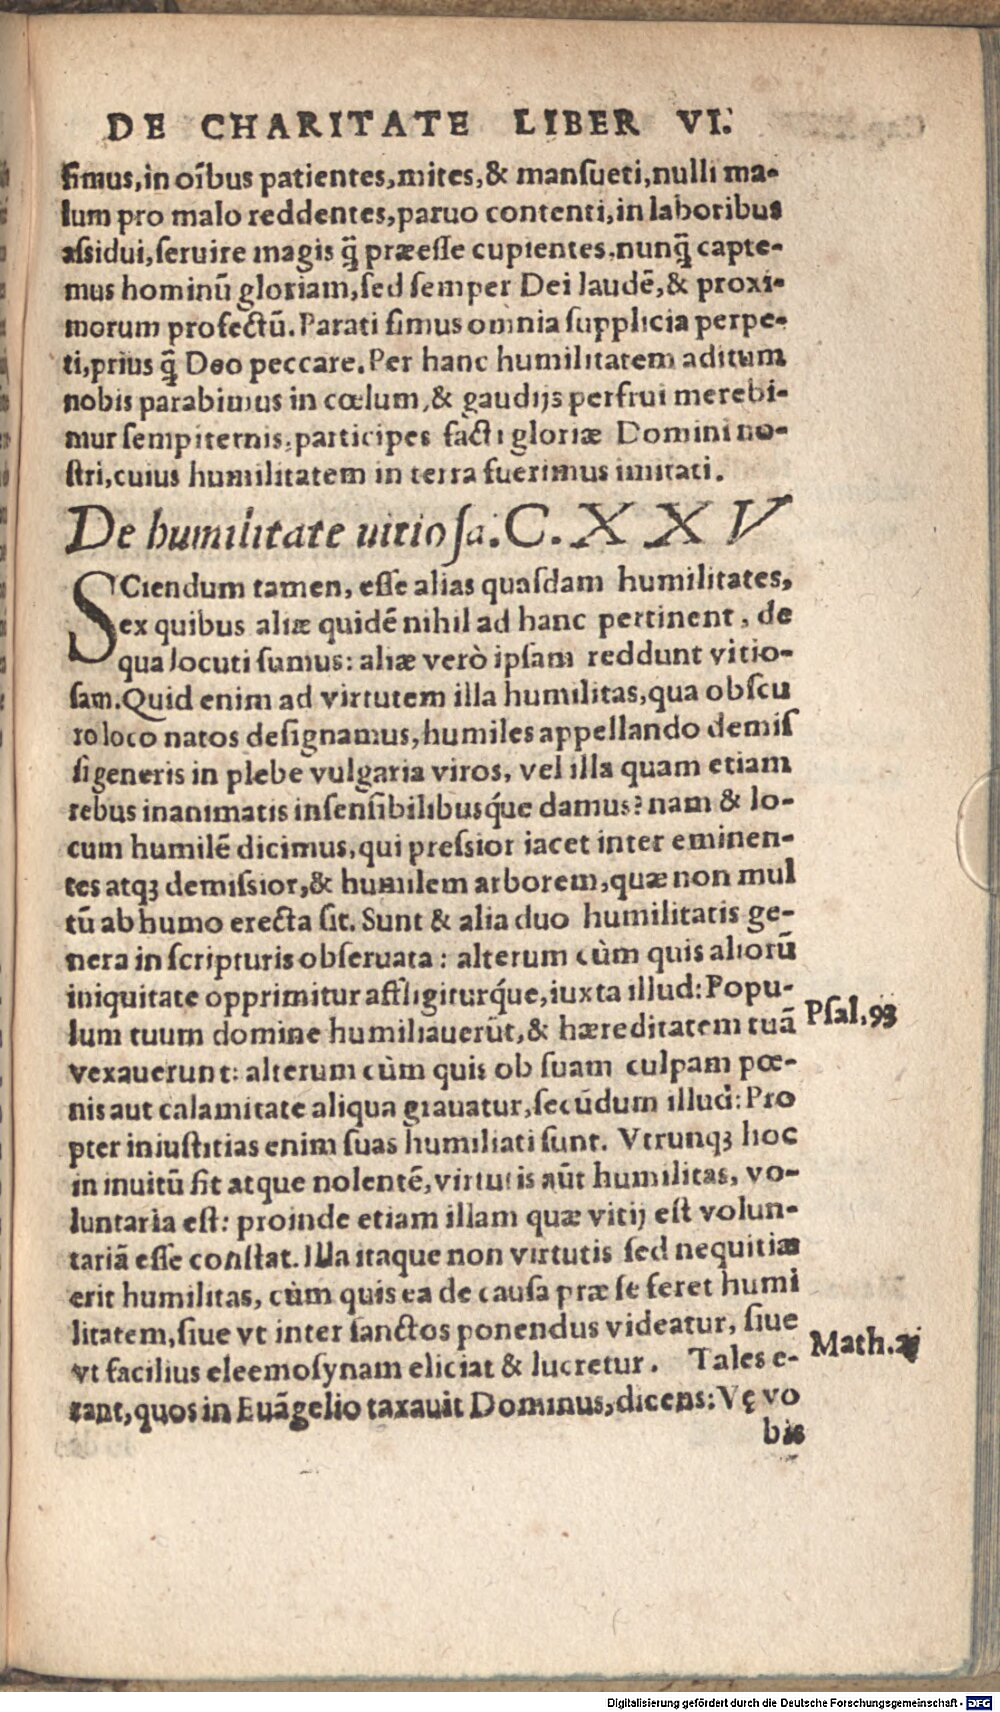 DE CHARITATE LIBER VI.
simus, in oı̃bus patientes, mites, & mansueti, nulli ma-
lum pro malo reddentes, paruo contenti, in laboribus
assidui, seruire magis q̃ præesse cupientes, nunq̃ capte-
mus hominũ gloriam, sed semper Dei laudẽ, & proxi-
morum profectũ. Parati simus omnia supplicia perpe-
ti, prius q̃ Deo peccare. Per hanc humilitatem aditum
nobis parabimus in cœlum, & gaudijs perfrui merebi-
mur sempiternis, participes facti gloriæ Domini no-
stri, cuius humilitatem in terra fuerimus imitati.
De humilitate uitiosa. C. XXV
SCiendum tamen, esse alias quasdam humilitates,
ex quibus aliæ quidẽ nihil ad hanc pertinent, de
qua locuti sumus: aliæ verò ipsam reddunt vitio-
sam. Quid enim ad virtutem illa humilitas, qua obscu
ro loco natos designamus, humiles appellando demis
si generis in plebe vulgaria viros, vel illa quam etiam
rebus inanimatis insensibilibusq́ue damus? nam & lo-
cum humilẽ dicimus, qui pressior iacet inter eminen-
tes atqꝫ demissior, & humilem arborem, quæ non mul
tũ ab humo erecta sit. Sunt & alia duo humilitatis ge-
nera in scripturis obseruata: alterum cùm quis aliorũ
iniquitate opprimitur affligiturq́ue, iuxta illud: Popu-
lum tuum domine humiliauerũt, & hæreditatem tuã
Psal. 93
vexauerunt: alterum cùm quis ob suam culpam pœ-
nis aut calamitate aliqua grauatur, secũdum illud: Pro
pter iniustitias enim suas humiliati sunt. Vtrunqꝫ hoc
in inuitũ fit atque nolentẽ, virtutis aũt humilitas, vo-
luntaria est: proinde etiam illam quæ vitij est volun-
tariã esse constat. Illa itaque non virtutis sed nequitiæ
erit humilitas, cùm quis ea de causa præ se feret humi
litatem, siue vt inter sanctos ponendus videatur, siue
vt facilius eleemosynam eliciat & lucretur. Tales e-
Math.
rant, quos in Euãgelio taxauit Dominus, dicens: Vę vo
bis
Digitalisierung gefördert durch die Deutsche Forschungsgemeinschaft - DFG